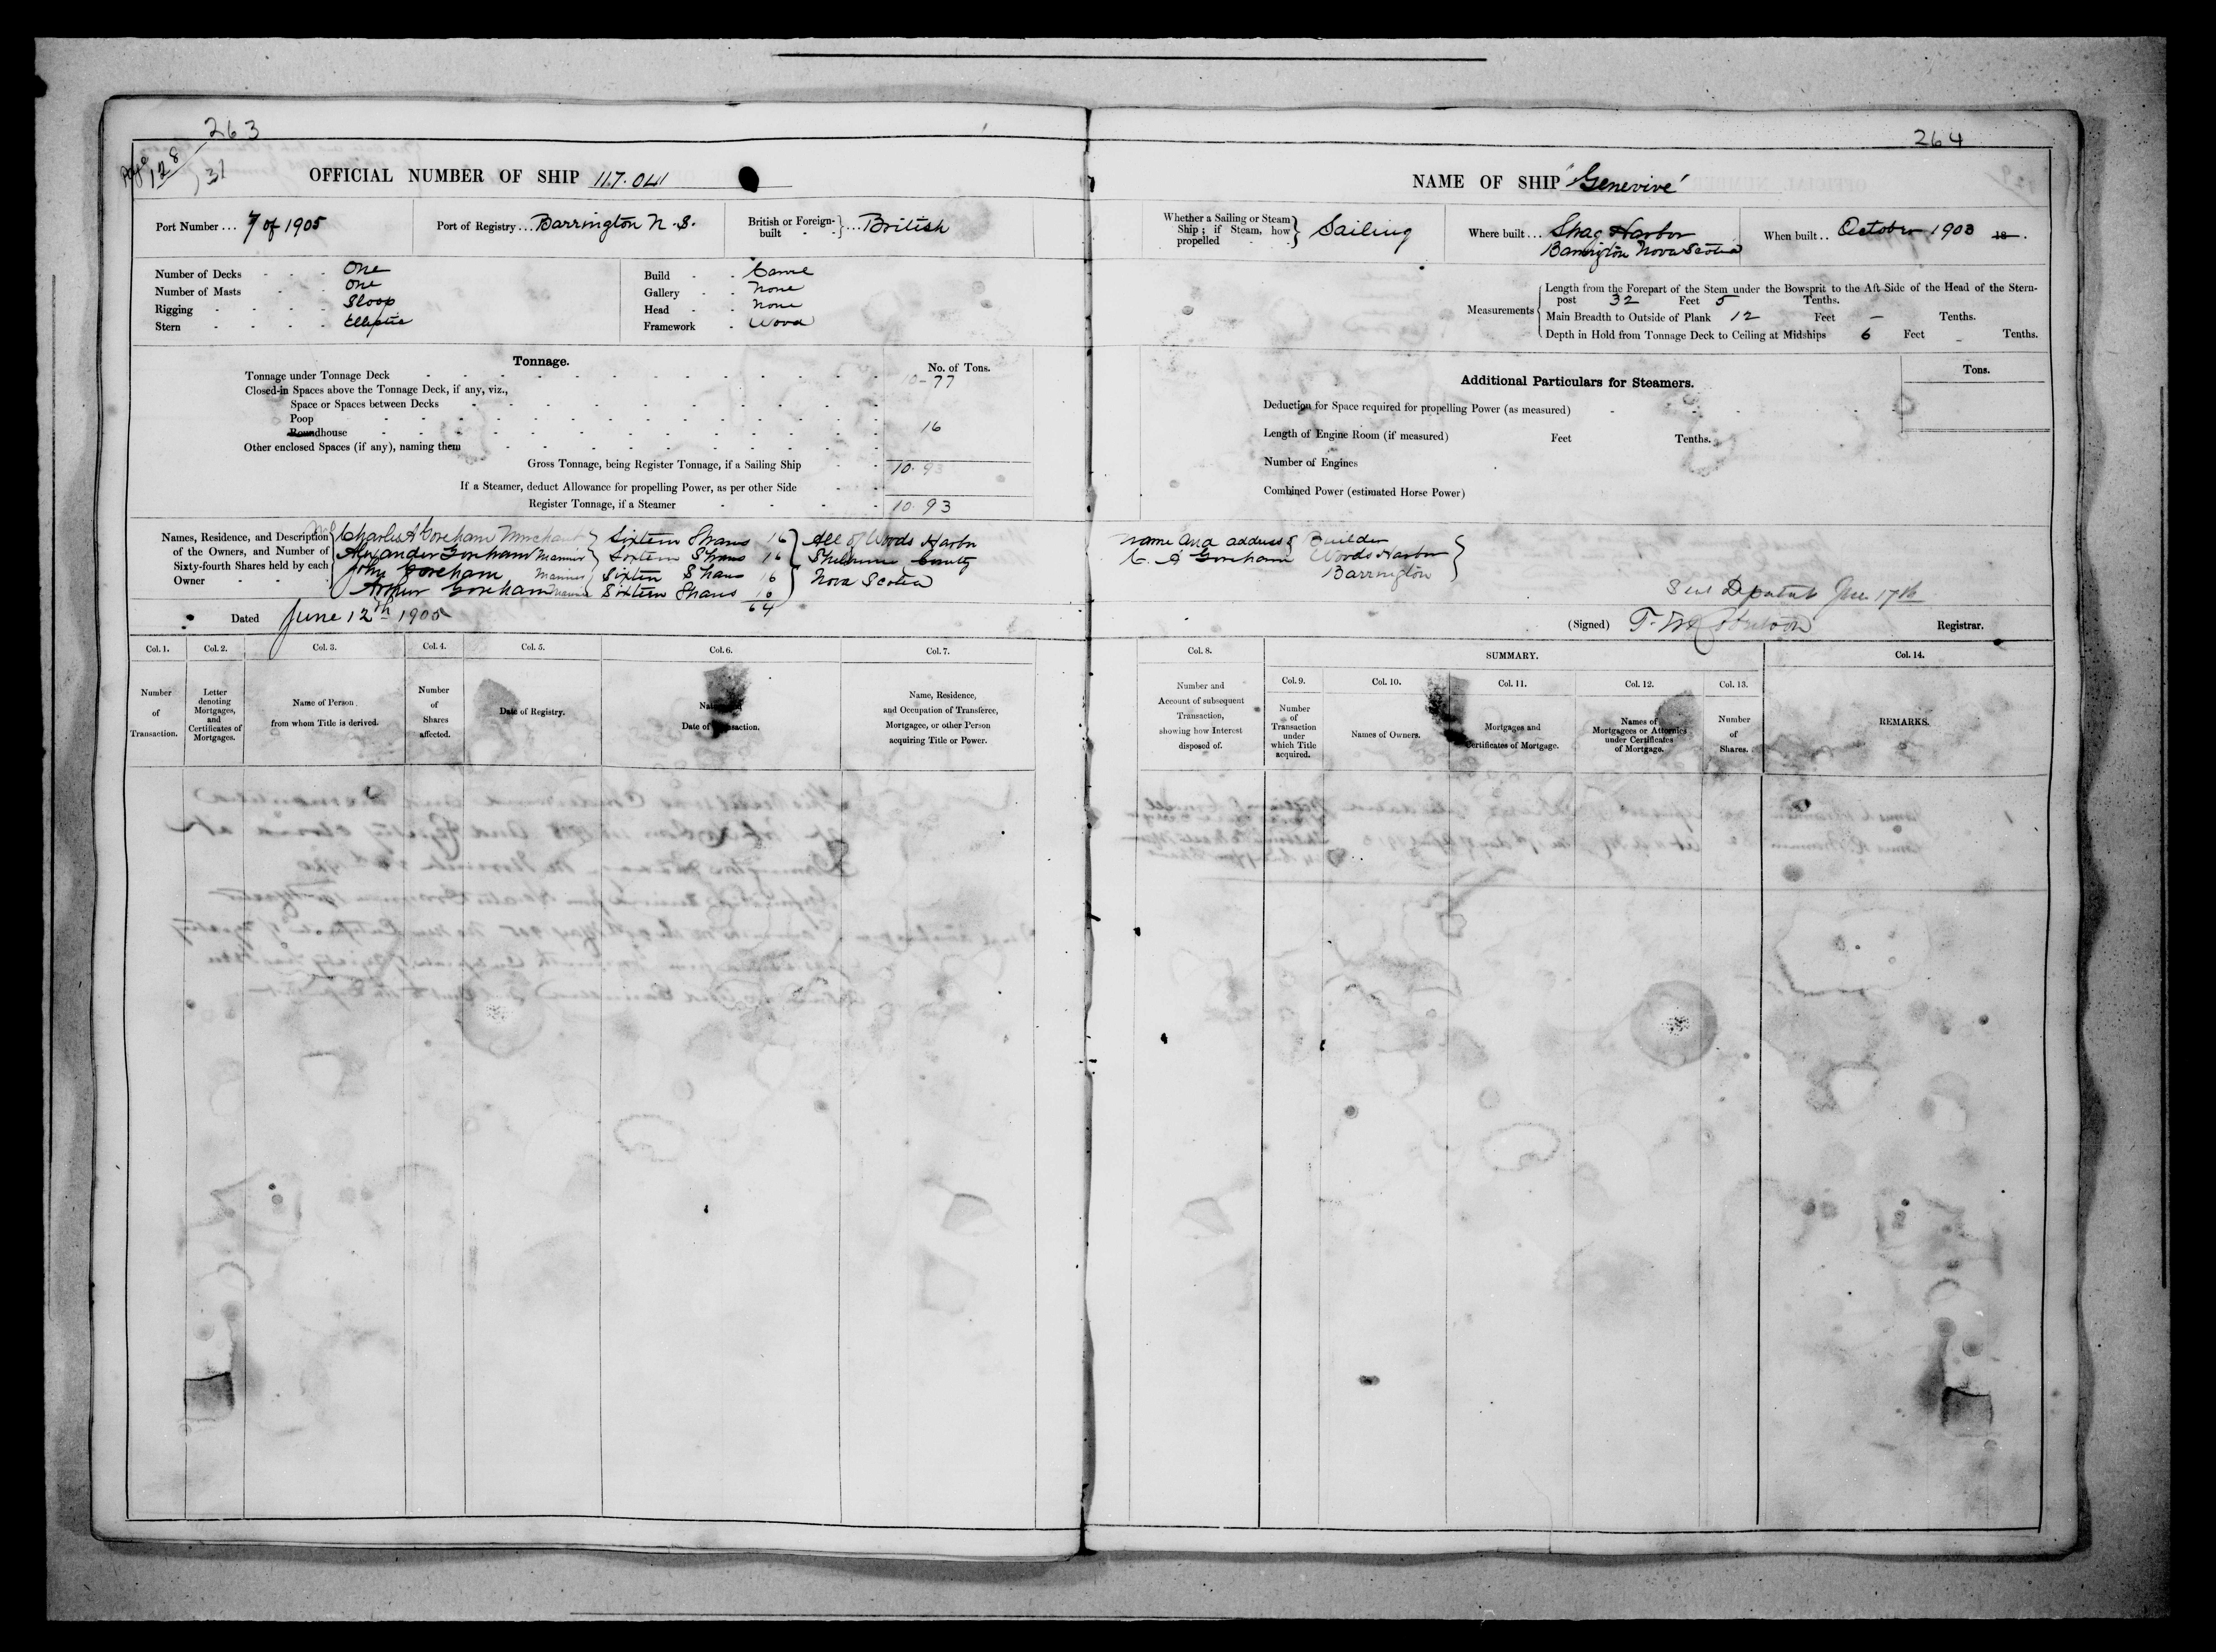 263
Page 128 / 31
OFFICIAL NUMBER OF SHIP 117.041
Port Number ... 7 of 1905 Port of Registry ... Barrington N.S. British or Foreign-built } ... British
Number of Decks - - - One
Number of Masts - - One
Rigging - - - - Sloop
Stern - - - - Elliptic
Build - - Carvel
Gallery - - None
Head - - None
Framework - Wood
Tonnage.
No. of Tons.
Tonnage under Tonnage Deck 10-77
Closed-in Spaces above the Tonnage Deck, if any, viz.,
Space or Spaces between Decks
Poop
Roundhouse 16
Other enclosed Spaces (if any), naming them
Gross Tonnage, being Register Tonnage, if a Sailing Ship 10.93
If a Steamer, deduct Allowance for propelling Power, as per other Side
Register Tonnage, if a Steamer 10.93
Names, Residence, and Description of the Owners, and Number of Sixty-fourth Shares held by each Owner
Charles A Goreham Merchant } Sixteen Shares 16 } All of Woods Harbor
Alexander Goreham Mariner } Sixteen Shares 16 } Shelburne County
John Goreham Mariner Sixteen Shares 16 } Nova Scotia
Arthur Goreham Mariner Sixteen Shares 16
64
Dated June 12th 1905
Col. 1. Col. 2. Col. 3. Col. 4. Col. 5. Col. 6. Col. 7.
Number of Transaction.
Letter denoting Mortgages, and Certificates of Mortgages.
Name of Person from whom Title is derived.
Number of Shares affected.
Date of Registry.
Date of
Name, Residence, and Occupation of Transferee, Mortgagee, or other Person acquiring Title or Power.
264
NAME OF SHIP "Genevive"
Whether a Sailing or Steam Ship; if Steam, how propelled } Sailing
Where built ... Shag Harbor
Barrington Nova Scotia
When built .. October 1903 18 .
Measurements
Length from the Forepart of the Stem under the Bowsprit to the Aft Side of the Head of the Stern-
post 32 Feet 5 Tenths.
Main Breadth to Outside of Plank 12 Feet — Tenths.
Depth in Hold from Tonnage Deck to Ceiling at Midships 6 Feet - Tenths.
Additional Particulars for Steamers.
Tons.
Deduction for Space required for propelling Power (as measured)
Length of Engine Room (if measured) Feet Tenths.
Number of Engines
Combined Power (estimated Horse Power)
Name and address of Builder
C. A Goreham Woods Harbor
Barrington
June 17th
(Signed) T. W. Robertson Registrar.
Col. 8. SUMMARY. Col. 14.
Col. 9. Col. 10. Col. 11. Col. 12. Col. 13.
Number and Account of subsequent Transaction, showing how Interest disposed of.
Number of Transaction under which Title acquired.
Names of Owners.
Mortgages and Certificates of Mortgage.
Names of Mortgagees or Attornies under Certificates of Mortgage.
Number of Shares.
REMARKS.